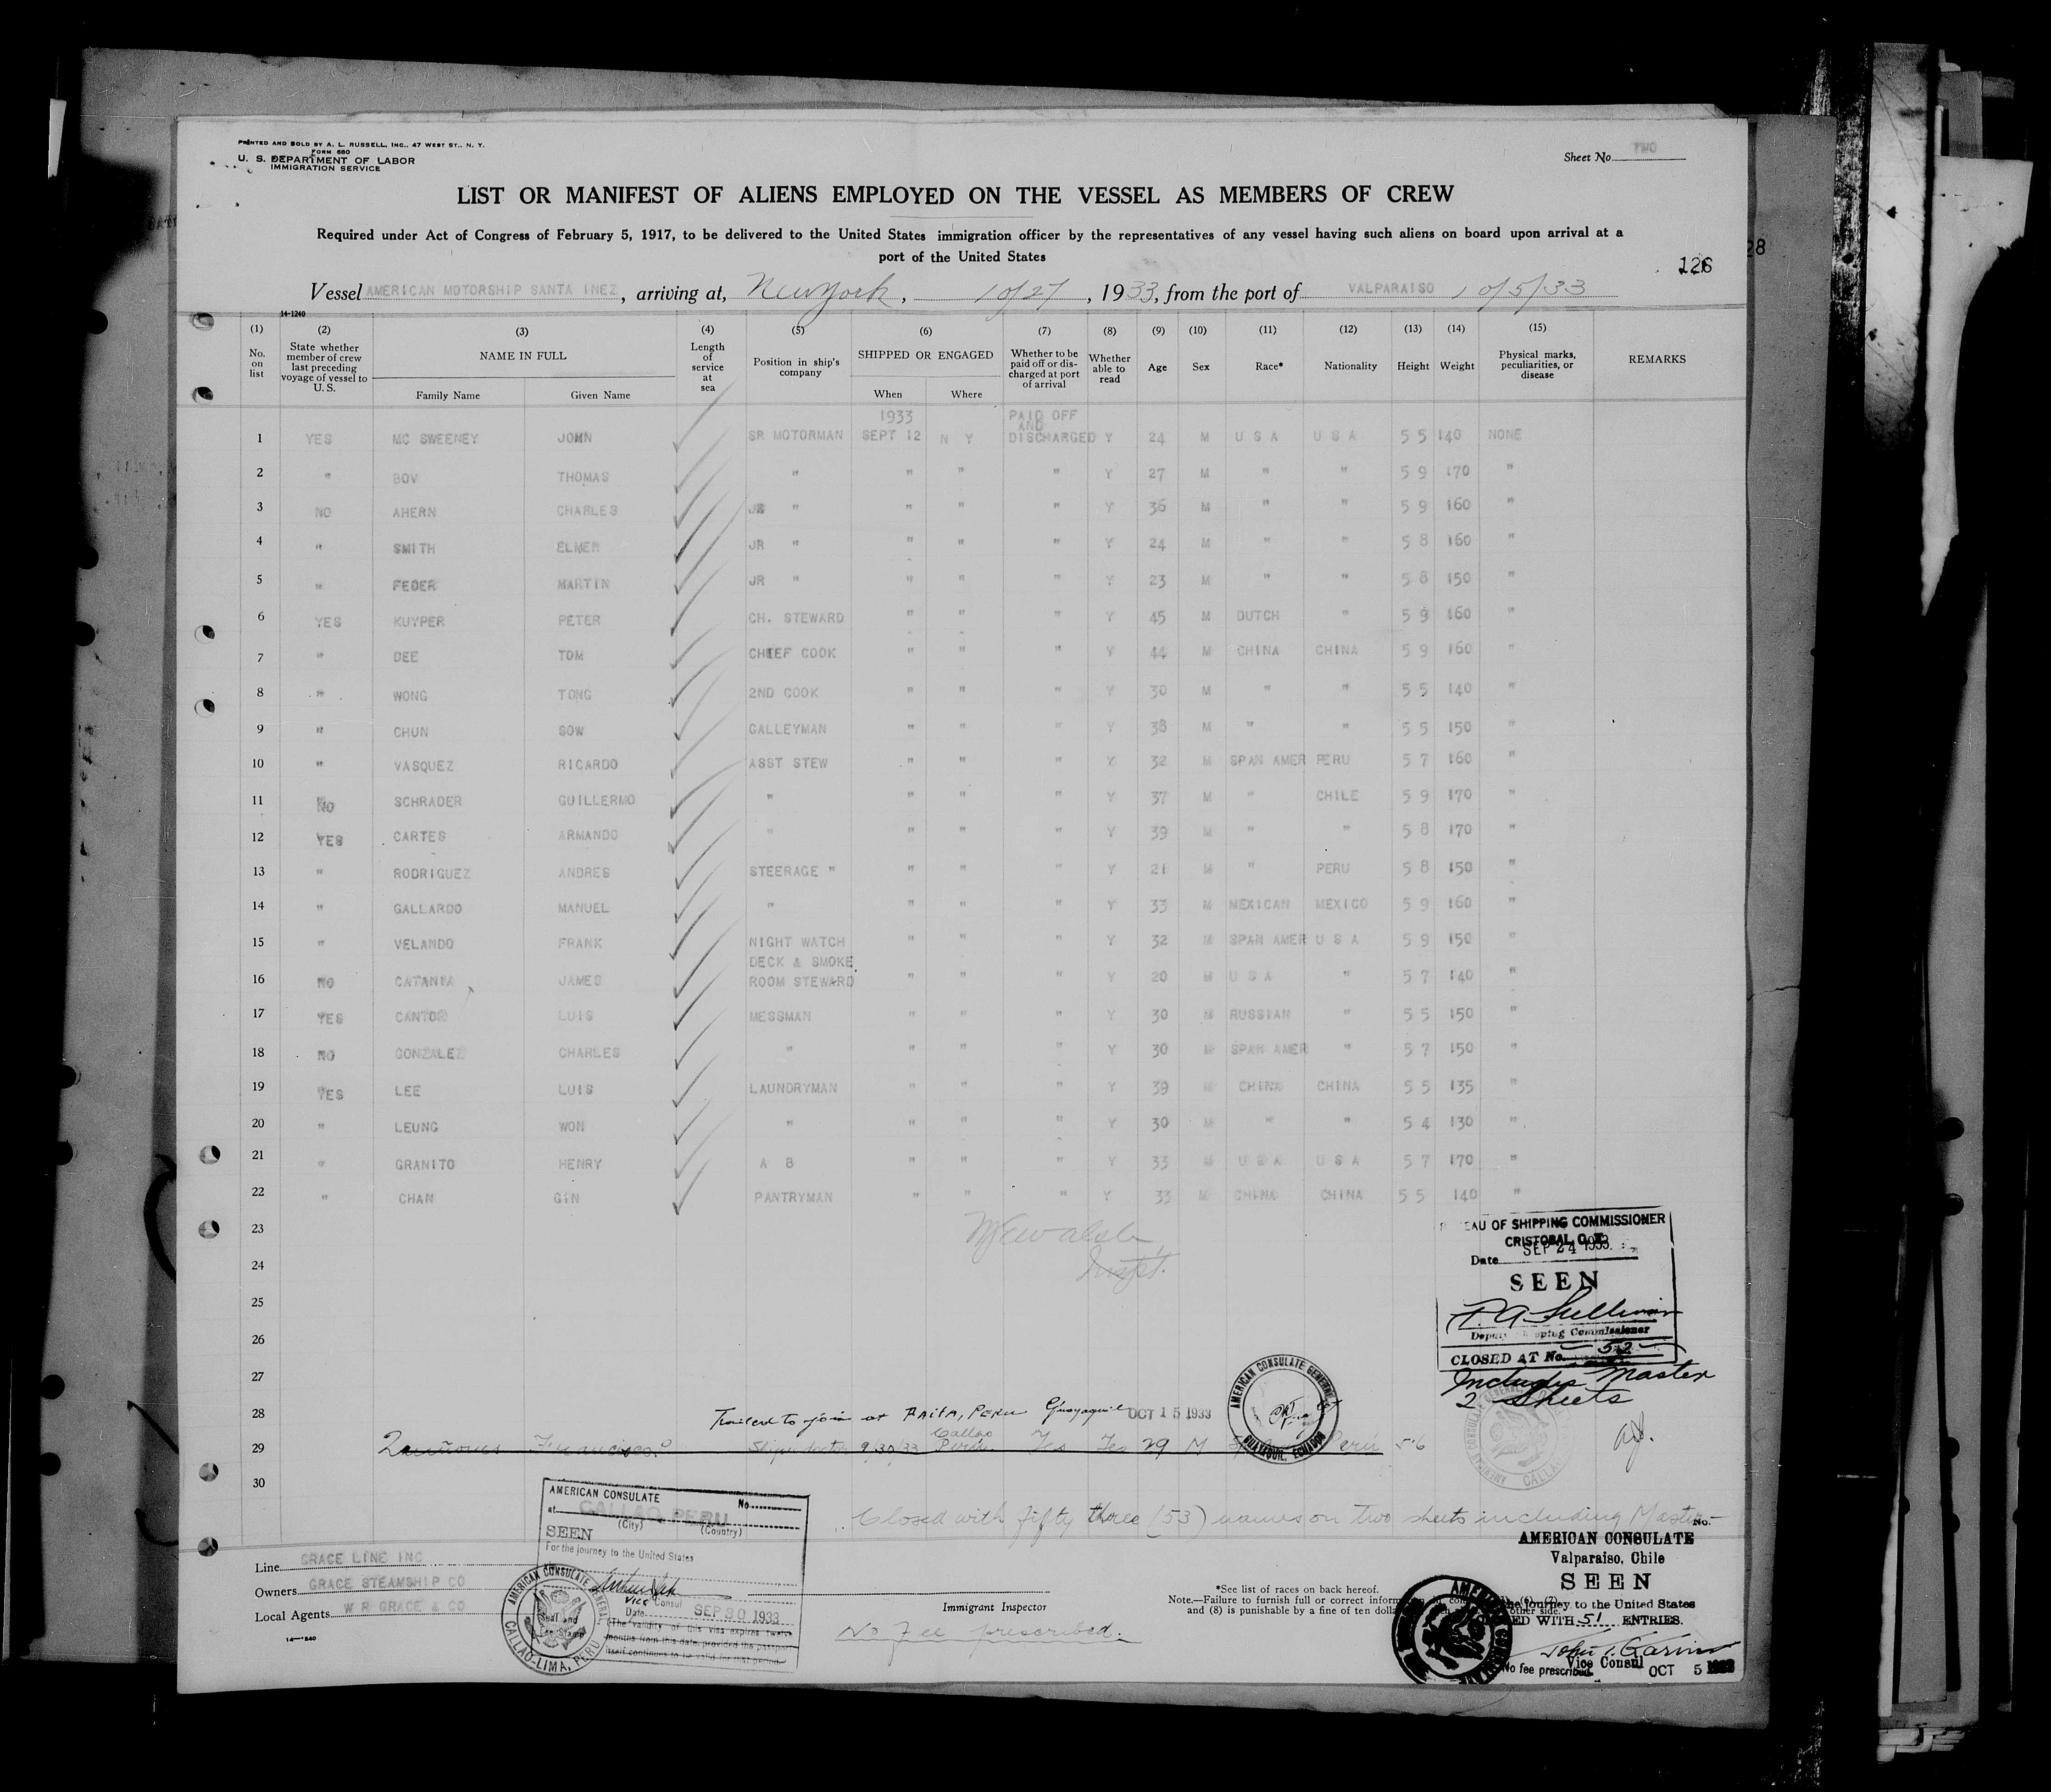 PRINTED AND SOLD BY A. L. RUSSELL, INC., 47 WEST ST., N. Y.
FORM 680
U. S. DEPARTMENT OF LABOR
IMMIGRATION SERVICE
Sheet No. TWO
LIST OR MANIFEST OF ALIENS EMPLOYED ON THE VESSEL AS MEMBERS OF CREW
Required under Act of Congress of February 5, 1917, to be delivered to the United States immigration officer by the representatives of any vessel having such aliens on board upon arrival at a
port of the United States
126
28
Vessel AMERICAN MOTORSHIP SANTA INEZ, arriving at, New York, 10/27, 1933, from the port of VALPARAISO 10/5/33
14-1240
(1) (2) (3) (4) (5) (6) (7) (8) (9) (10) (11) (12) (13) (14) (15)
No. on list
State whether member of crew last preceding voyage of vessel to U. S.
NAME IN FULL
Family Name Given Name
Length of service at sea
Position in ship's company
SHIPPED OR ENGAGED
When Where
Whether to be paid off or discharged at port of arrival
Whether able to read
Age Sex Race* Nationality Height Weight
Physical marks, peculiarities, or disease
REMARKS
1933 PAID OFF AND
1 YES MC SWEENEY JOHN SR MOTORMAN SEPT 12 N Y DISCHARGED Y 24 M U S A U S A 5 5 140 NONE
2 " BOV THOMAS " " " " Y 27 M " " 5 9 170 "
3 NO AHERN CHARLES JR " " " " Y 36 M " " 5 9 160 "
4 " SMITH ELMER JR " " " " Y 24 M " " 5 8 160 "
5 " FEDER MARTIN JR " " " " Y 23 M " " 5 8 150 "
6 YES KUYPER PETER CH. STEWARD " " " Y 45 M DUTCH " 5 9 160 "
7 " DEE TOM CHIEF COOK " " " Y 44 M CHINA CHINA 5 9 160 "
8 " WONG TONG 2ND COOK " " " Y 30 M " " 5 5 140 "
9 " CHUN SOW GALLEYMAN " " " Y 38 M " " 5 5 150 "
10 " VASQUEZ RICARDO ASST STEW " " " Y 32 M SPAN AMER PERU 5 7 160 "
11 NO SCHRADER GUILLERMO " " " " Y 37 M " CHILE 5 9 170 "
12 YES CARTES ARMANDO " " " " Y 39 M " " 5 8 170 "
13 " RODRIGUEZ ANDRES STEERAGE " " " " Y 21 M " PERU 5 8 150 "
14 " GALLARDO MANUEL " " " " Y 33 M MEXICAN MEXICO 5 9 160 "
15 " VELANDO FRANK NIGHT WATCH " " " Y 32 M SPAN AMER U S A 5 9 150 "
DECK & SMOKE
16 NO CATANIA JAMES ROOM STEWARD " " " Y 20 M U S A " 5 7 140 "
17 YES CANTOR LUIS MESSMAN " " " Y 30 M RUSSIAN " 5 5 150 "
18 NO GONZALEZ CHARLES " " " " Y 30 M SPAN AMER " 5 7 150 "
19 YES LEE LUIS LAUNDRYMAN " " " Y 39 M CHINA CHINA 5 5 135 "
20 " LEUNG WON " " " " Y 30 M " " 5 4 130 "
21 " GRANITO HENRY A B " " " Y 33 M U S A U S A 5 7 170 "
22 " CHAN GIN PANTRYMAN " " " Y 33 M CHINA CHINA 5 5 140 "
23
24
25
26
27
28 Failed to join at PAITA, PERU Guayaquil OCT 15 1933
29 Francisco 9/30/33 Callao Peru Yes Yes 29 M Peru 5'6
30
Walsh
Inspt.
BUREAU OF SHIPPING COMMISSIONER
CRISTOBAL, C. Z.
Date SEP 24 1933
SEEN
Sullivan
Deputy Shipping Commissioner
CLOSED AT No. 52
Includes Master
2 Sheets
AMERICAN CONSULATE GENERAL
GUAYAQUIL, ECUADOR
Closed with fifty three (53) names on two sheets including Master
AMERICAN CONSULATE No.
at CALLAO PERU
(City) (Country)
SEEN
For the journey to the United States
Vice Consul
Date SEP 30 1933
(The validity of this visa expires twelve months from this date, provided the passport itself continues to be valid for that period.)
AMERICAN CONSULATE GENERAL
CALLAO-LIMA, PERU
Line GRACE LINE INC
Owners GRACE STEAMSHIP CO
Local Agents W R GRACE & CO
14-1240
Immigrant Inspector
No Fee prescribed.
*See list of races on back hereof.
Note.—Failure to furnish full or correct information
and (8) is punishable by a fine of ten dollars other side.
No.
AMERICAN CONSULATE
Valparaiso, Chile
SEEN
the journey to the United States
WITH 51 ENTRIES.
Vice Consul
No fee prescribed. OCT 5 1933